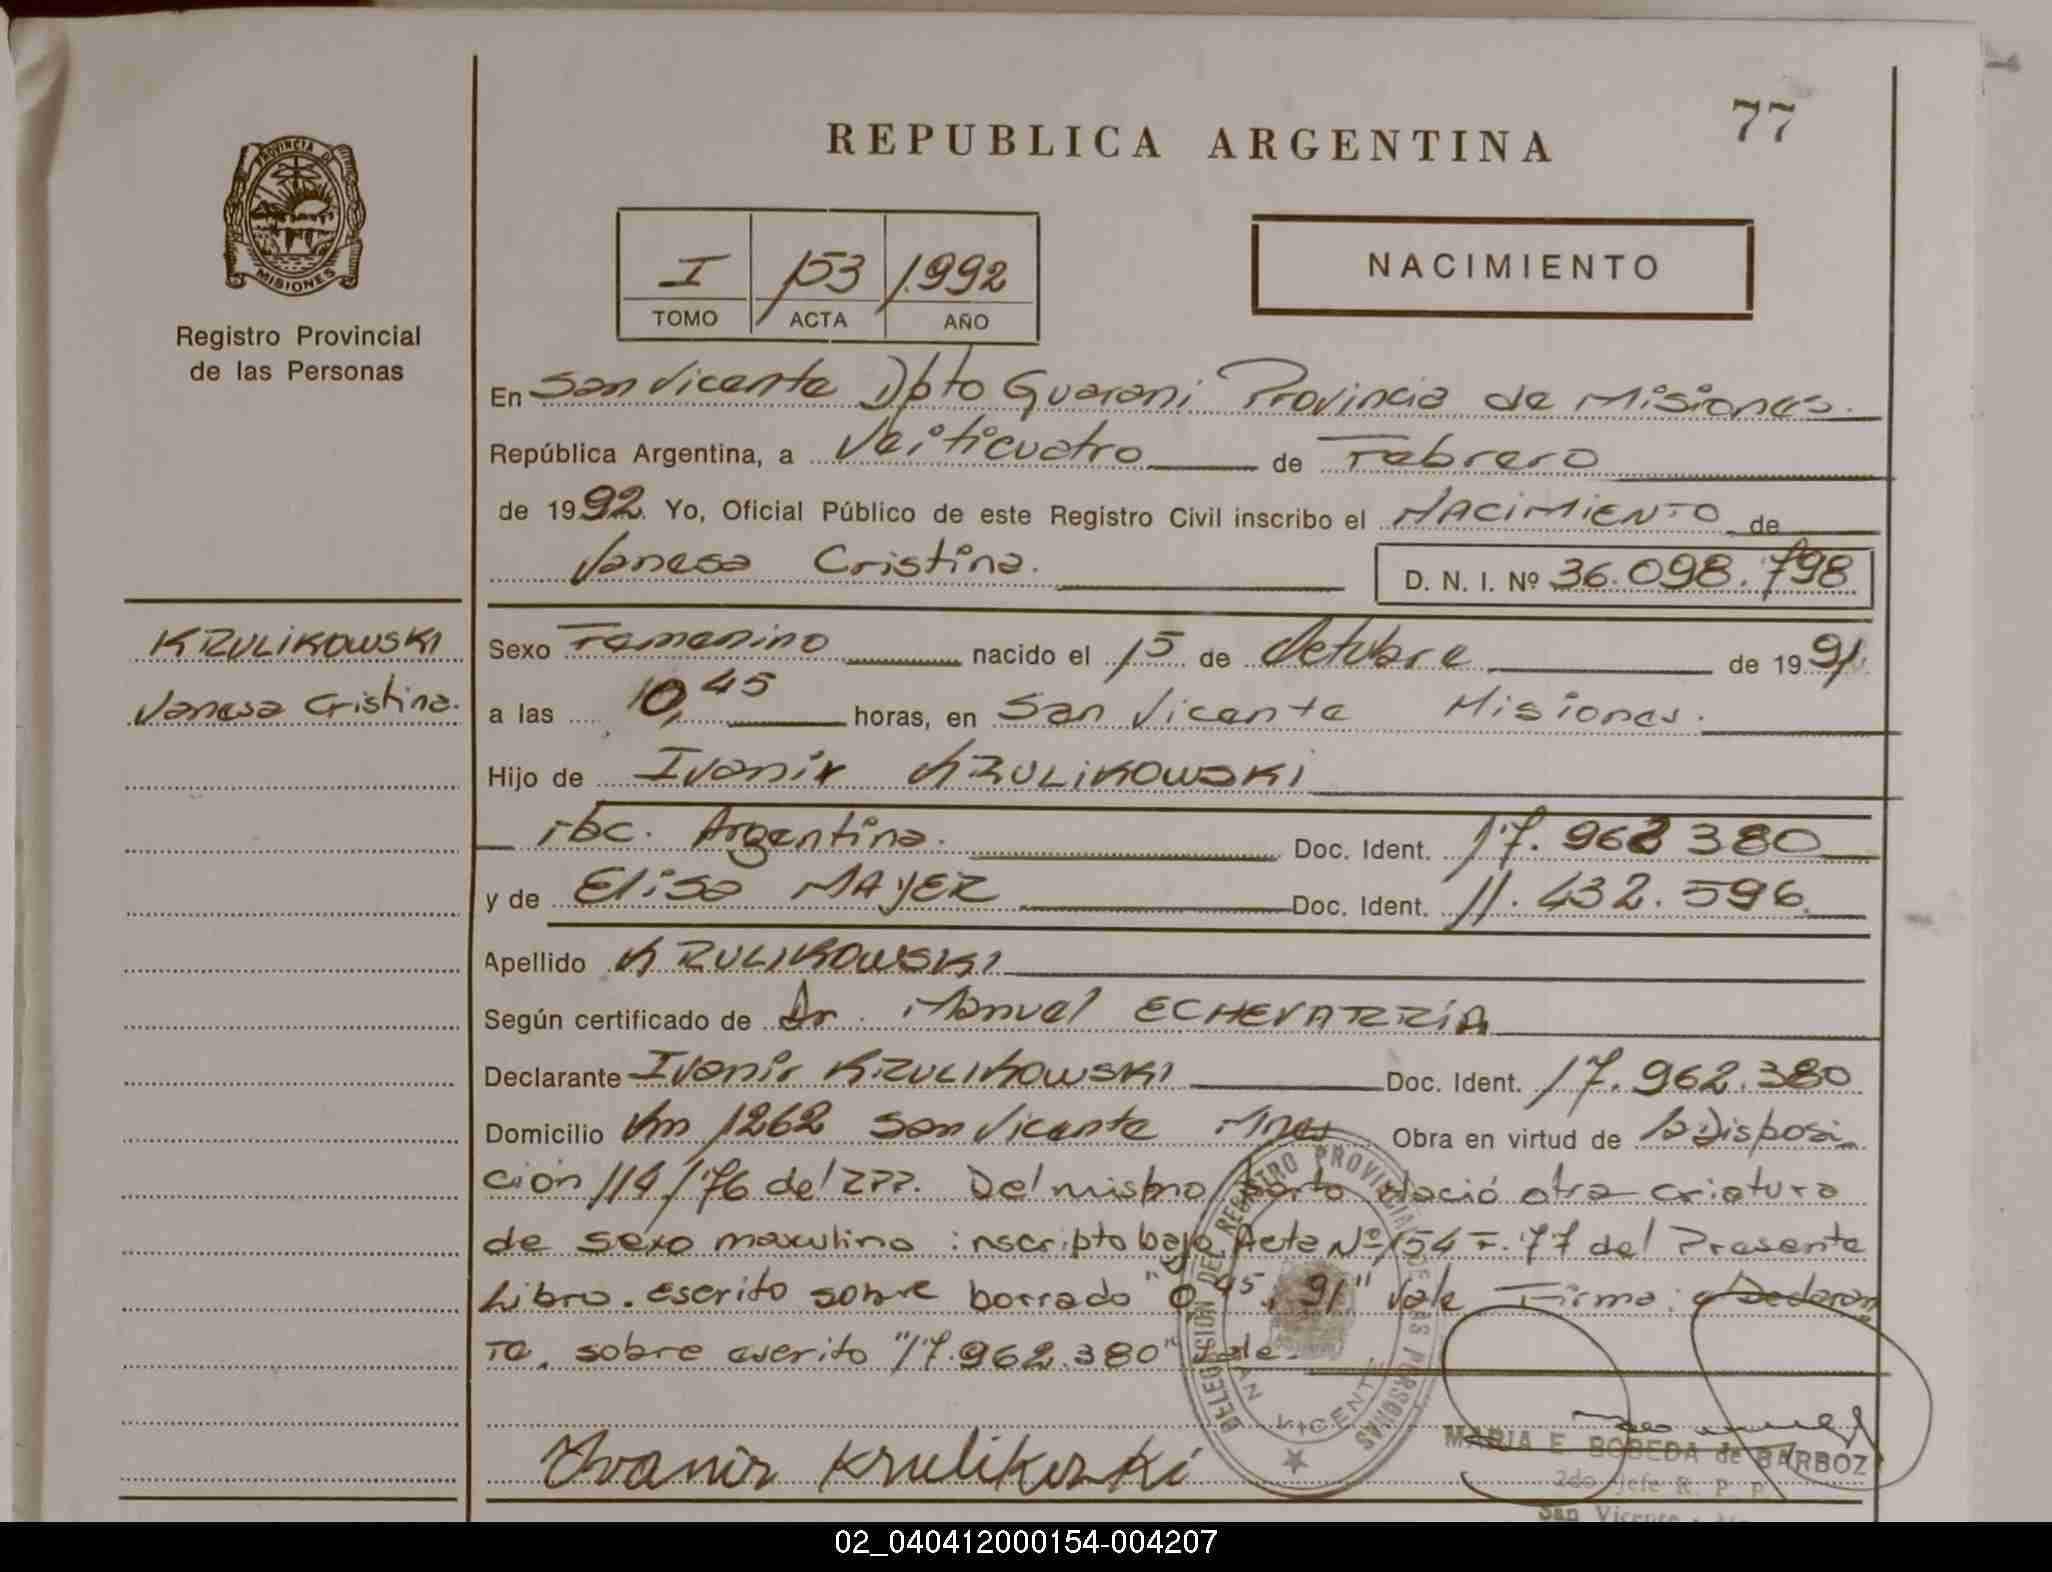 77
REPUBLICA ARGENTINA
PROVINCIA DE
MISIONES
Registro Provincial
de las Personas
I 153 1992
TOMO ACTA AÑO
NACIMIENTO
En San Vicente Dpto Guarani Provincia de Misiones.
República Argentina, a Veiticuatro de Febrero
de 1992. Yo, Oficial Público de este Registro Civil inscribo el NACIMIENTO de
Vanesa Cristina.
D. N. I. Nº 36.098.798
KRZULIKOWSKI
Vanesa Cristina.
Sexo Femenino nacido el 15 de Octubre de 1991
a las 10,45 horas, en San Vicente Misiones.
Hijo de Ivanir KRZULIKOWSKI
Nac. Argentina. Doc. Ident. 17.962 380
y de Elisa MAYER Doc. Ident. 11.432.596.
Apellido KRZULIKOWSKI
Según certificado de Dr. Manuel ECHEVARRÍA
Declarante Ivanir KRZULIKOWSKI Doc. Ident. 17.962.380
Domicilio Km 1262 San Vicente Mnes Obra en virtud de la Disposi
ción 114/76 del RPP. Del mismo parto Nació otra criatura
de sexo masculino inscripto bajo Acta Nº 154 F. 77 del Presente
Libro. escrito sobre borrado "0,45, 91" Vale Firma: Declaran
te. sobre escrito "17.962.380" Vale.
DELEGACION DEL REGISTRO PROVINCIAL DE LAS PERSONAS
SAN VICENTE
Ivanir
MARIA E. BOBEDA de BARBOZ
2do Jefe R. P. P.
San Vicente
02_040412000154-004207